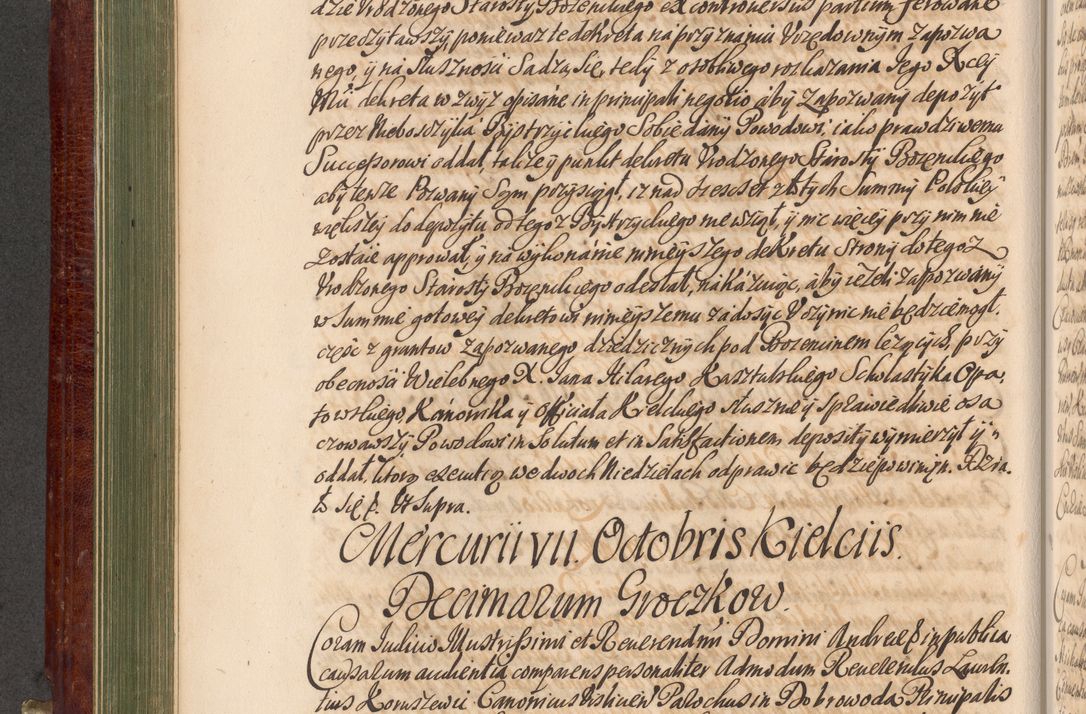 dzie Urodzonego Starosty Bozenckiego ex controversiis partium ferowane
przeczytawszy, poniewaz te dekreta na przyznaniu Urzędownym Zapozwa
nego, y na słusznosci Sadzą się, tedy z osobliwego rozkazania Jego Xcej
Mci dekreta w zwyz opisane in principali negotio aby Zapozwany depozyt
przez Nieboszczyka Bystrzyckiego Sobie dany Powodowi, iako prawdziwemu
Successorowi oddał, takze y punkt dekretu Urodzonego Starosty Bozenckiego
aby tenze Pozwany Szym przysiągł, iz nad szescset złtych Summy Polskiey
większey do depozytu od tego z Bystrzyckiego nie wziął, y nic więcey przy nim nie
zostaie apprował, y na wykonanie ninieyszego dekretu Strony do tegoz
Urodzonego Starosty Bozenckiego odesłał, nakazuiąc, aby iezeli zapozwany
w Summie gotowey dekretowi ninieyszemu zadosyc Uczynic nie będzie mogł.
częsc z gruntow Zapozwanego dziedzicznych pod Bozencinem lezących, przy
obecnosci Wielebnego X. Jana Hilarego Kasztulskiego Scholastyka Opa,
towskiego, Kanonika y Officiała Kielckiego słusznie y sprawiedliwie osa
czowawszy Powodowi in Solutum et in Satisfactionem deposity wymierzył y
oddał, ktorą execucyą we dwoch Niedzielach odprawic będzie powinien. Dzia
ło się p. Ut Supra.
Mercurii VII. Octobris Kielciis.
Decimarum Groczkow.
Coram Judicio Illustrissimi et Reverendmi Domini Andreæ in publica
causarum audientia comparens personaliter Admodum Reverendus Lauren,
tius Koruszewic Canonicus Parochus in Dobrowoda Principalis